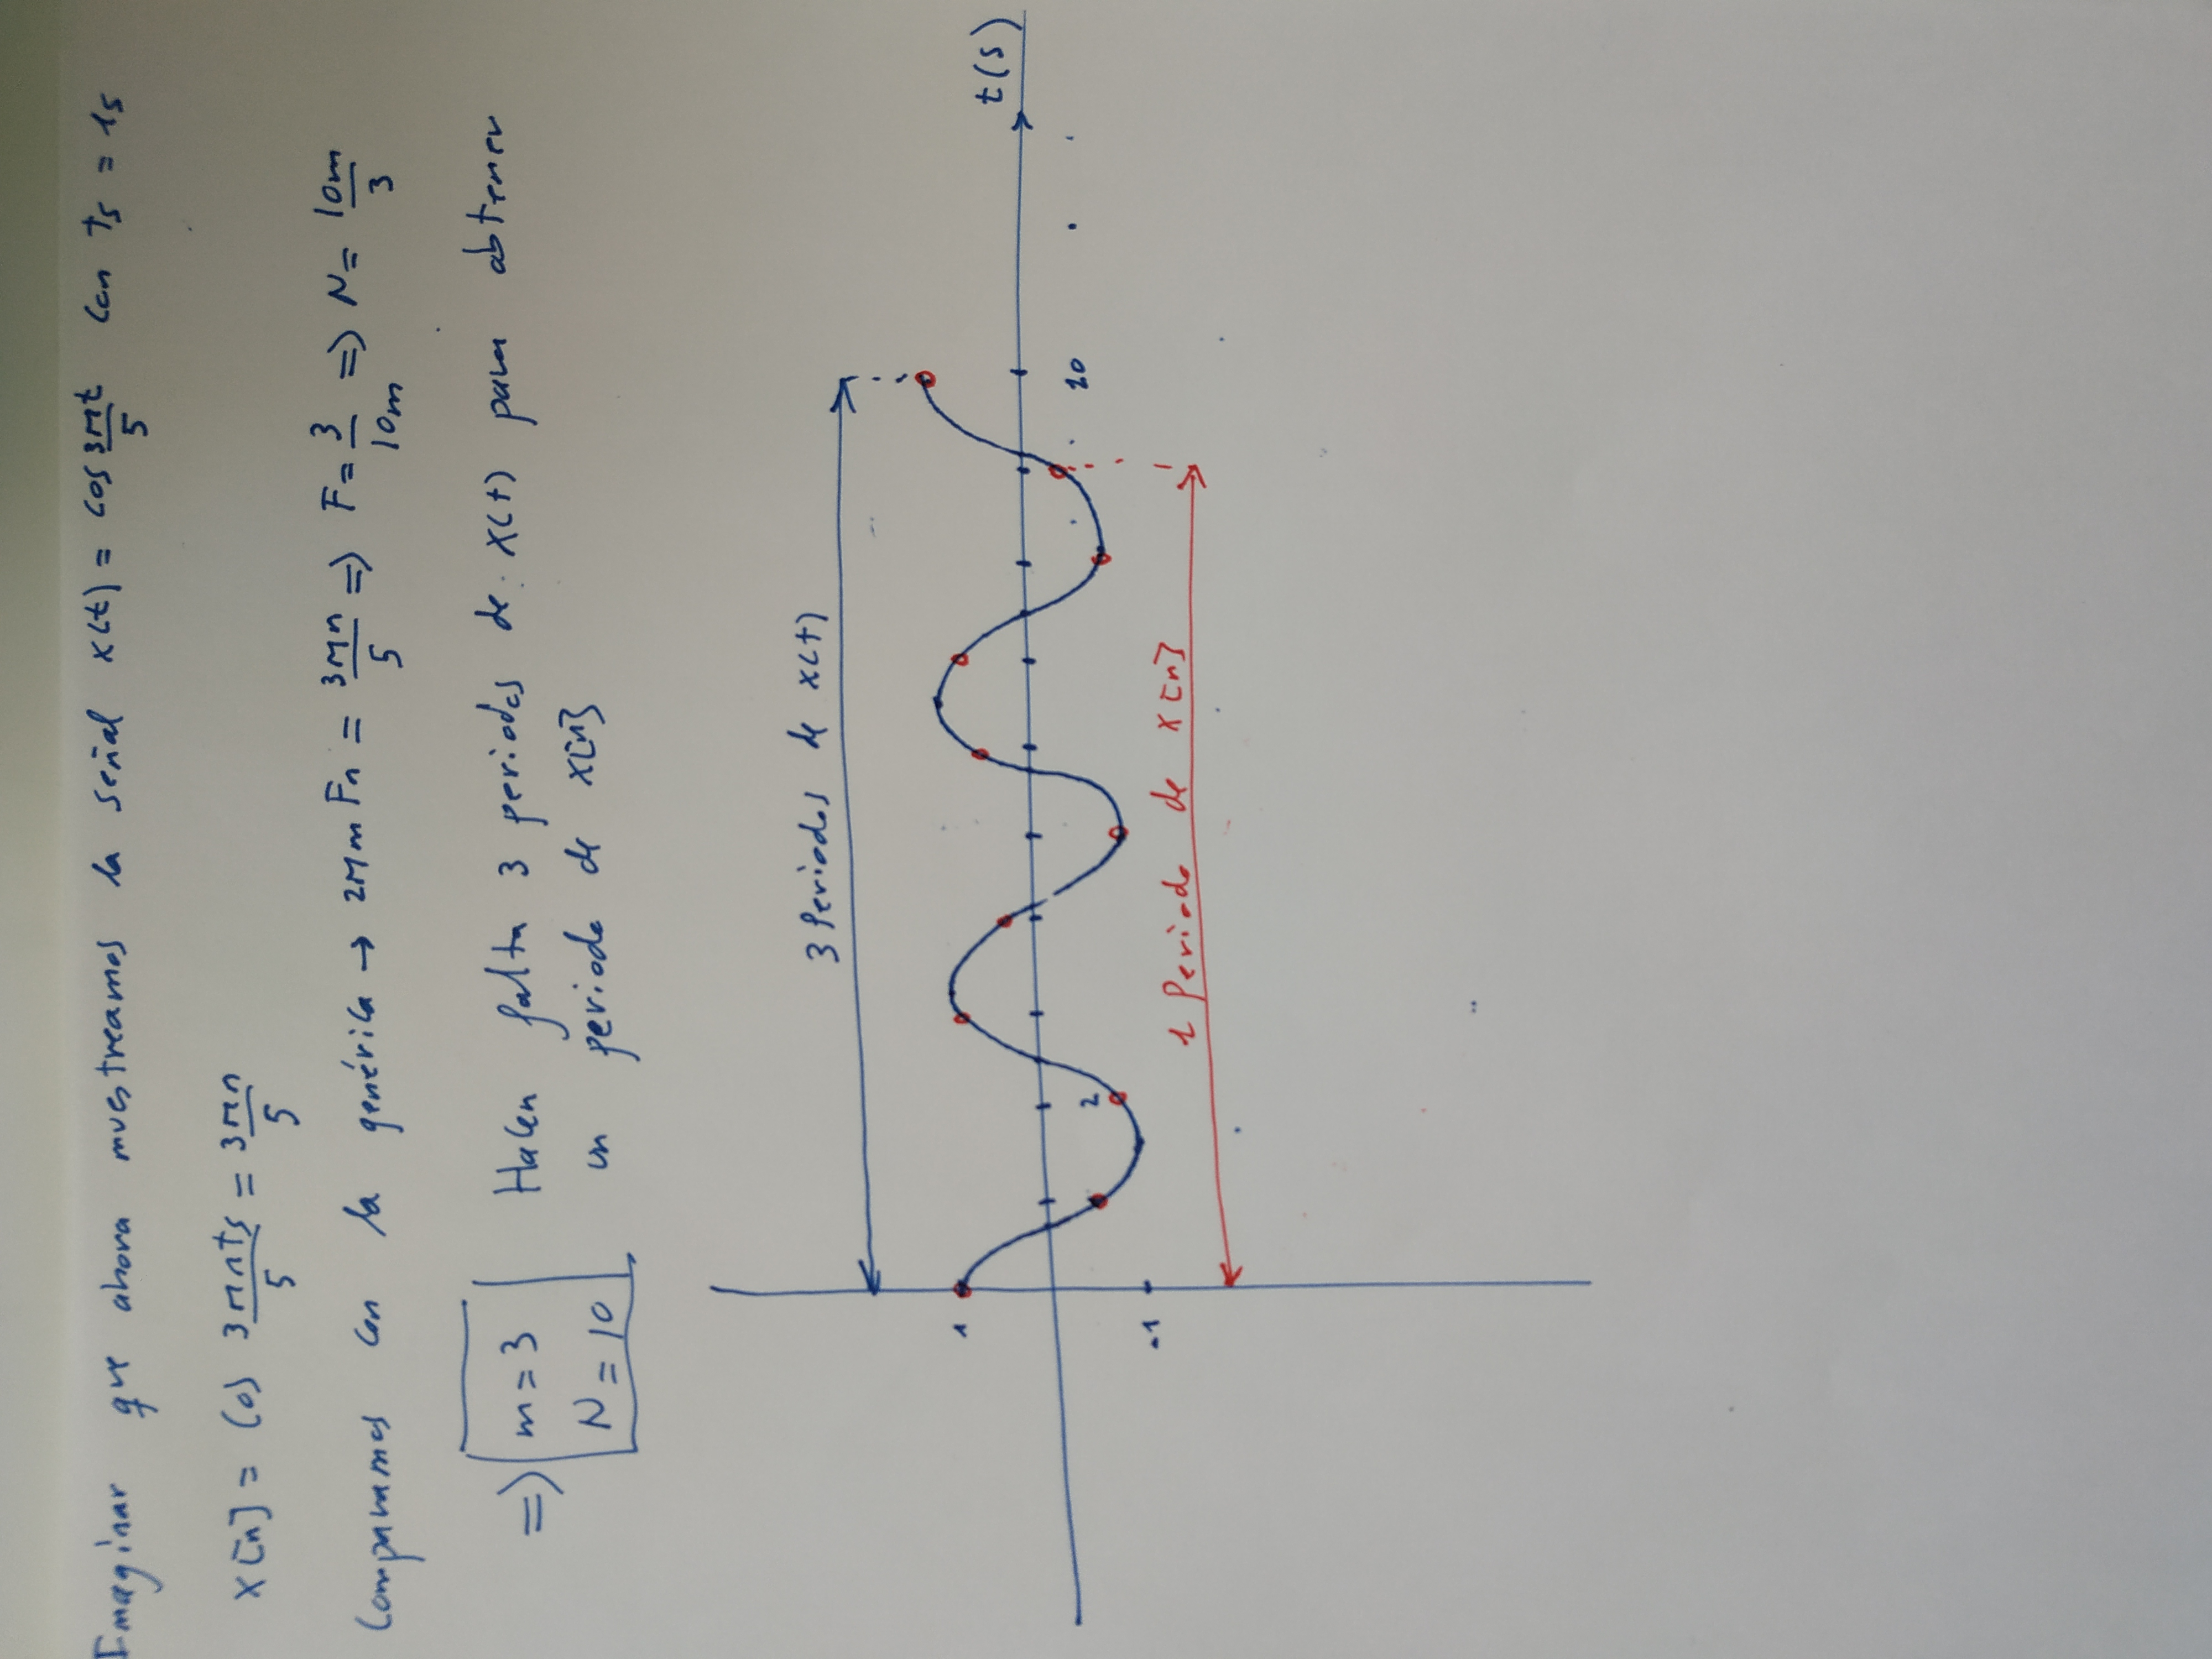 Imaginar que ahora muestreamos la señal x(t) = cos 3πt/5 con ts = 1s
x[n] = cos 3πnts/5 = 3πn/5
Comparamos con la genérica → 2πm Fn = 3πn/5 => F = 3/10m => N = 10m/3
=> m = 3 Hacen falta 3 periodos de x(t) para obtener
N = 10 un periodo de x[n]
3 Periodos de x(t)
1
t(s)
2
10
-1
1 Periodo de x[n]